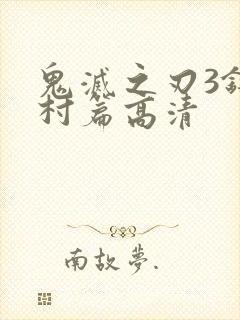 鬼滅之刃3
村篇高清
南故夢.